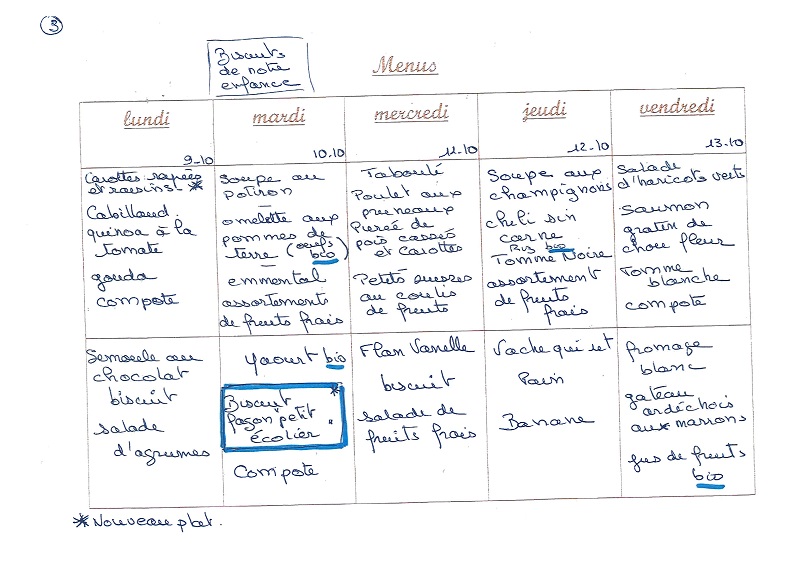 3
Biscuits
de notre
enfance
Menus
lundi
9-10
mardi
10.10
mercredi
11-10
jeudi
12-10
vendredi
13.10
Carottes rapées
et raisins *
Cabillaud
quinoa à la
tomate
gouda
compote
Soupe au
Potiron
omelette aux
pommes de
terre (oeufs
bio)
emmental
assortements
de fruits frais
Taboulé
Poulet aux
pruneaux
Purée de
pois cassés
et Carottes
Petits suisses
au coulis
de fruits
Soupe aux
champignons
chili sin
carne
Riz bio
Tomme Noire
assortement
de fruits
frais
Salade
d'haricots verts
Saumon
gratin de
chou fleur
Tomme
blanche
compote
Semoule au
chocolat
biscuit
salade
d'agrumes
yaourt bio
Biscuit *
façon "petit
écolier"
Compote
Flan Vanille
biscuit
salade de
fruits frais
Vache qui rit
Pain
Banane
fromage
blanc
gateau
ardéchois
aux marrons
jus de fruits
bio
* Nouveau plat.